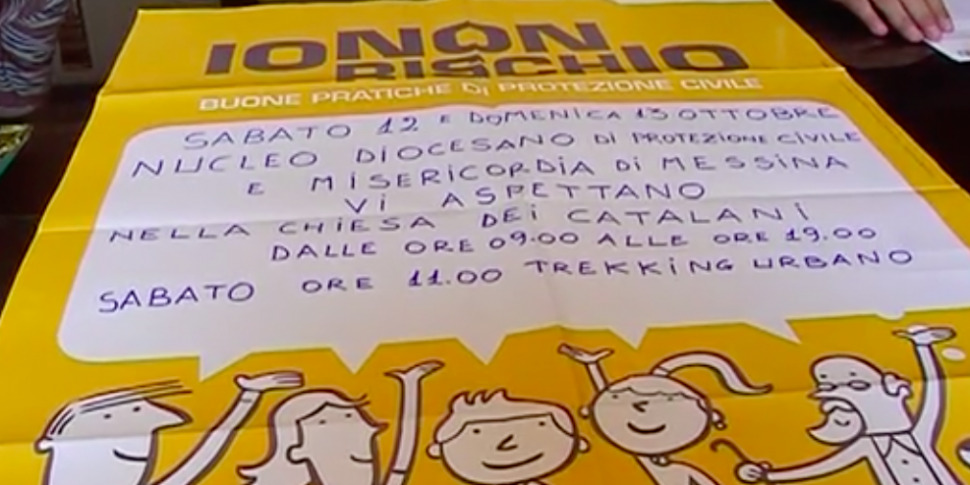 IO NON
RISCHIO
BUONE PRATICHE Di PROTEZIONE CIVILE
SABATO 12 E DOMENICA 13 OTTOBRE
NUCLEO DIOCESANO Di PROTEZIONE CIVILE
E MISERICORDIA Di MESSINA
Vi ASPETTANO
NELLA CHIESA DEi CATALANi
DALLE ORE 09.00 ALLE ORE 19.00
SABATO ORE 11.00 TREKKiNG URBANO